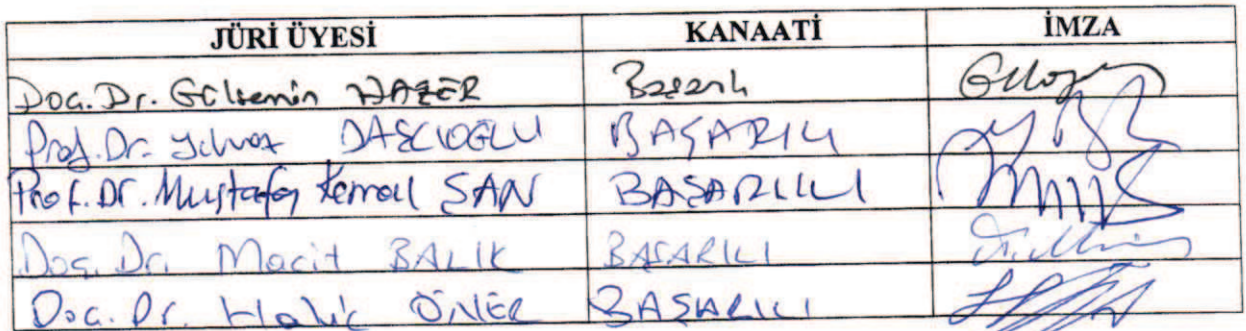 JÜRİ ÜYESİ KANAATİ İMZA
Doç. Dr. Gülsemin HAZER Başarılı
Prof. Dr. Yılmaz DAŞCIOĞLU BAŞARILI
Prof. Dr. Mustafa Kemal ŞAN BAŞARILI
Doç. Dr. Macit BALIK BAŞARILI
Doç. Dr. Haluk ÖNER BAŞARILI